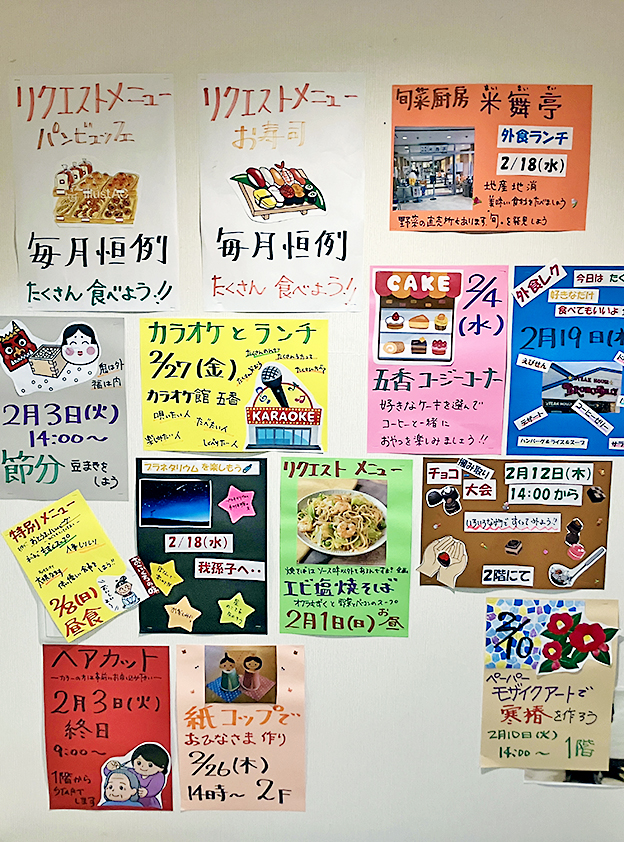 リクエストメニュー
パンビュッフェ
毎月恒例
たくさん食べよう!!
リクエストメニュー
お寿司
毎月恒例
たくさん食べよう!!
旬菜厨房 米舞亭
外食ランチ
2/18(水)
地産地消
美味しい食材をたべましょう
野菜の直売所もあります。旬を発見しよう
鬼は外
福は内
2月3日(火)
14:00～
節分 豆まきを
しよう
カラオケとランチ
2/27(金)
カラオケ館 五香
唄いたい人
たべたい人
楽しみたい人
しゃべりたい人
KARAOKE
CAKE
2/4
(水)
五香コージーコーナー
好きなケーキを選んで
コーヒーと一緒に
おやつを楽しみましょう!!
外食レク
今日は たく
好きなだけ
食べてもいいよ
2月19日(木
えびせん
STEAK HOUSE
デザート
コーヒーゼリー
ハンバーグ&ライス&スープ
サラ
特別メニュー
2/8(日)
昼食
プラネタリウムを楽しもう
2/18(水)
我孫子へ・・
リクエスト メニュー
エビ塩焼そば
2月1日(日)お昼
チョコ
掴み取り
大会
2月12日(木)
14:00から
2階にて
ヘアカット
2月3日(火)
終日
9:00～
1階から
STARTします
紙コップで
おひなさま作り
2/26(木)
14時～ 2F
2/10
ペーパー
モザイクアートで
寒椿を作ろう
2月10日(火)
14:00～ 1階